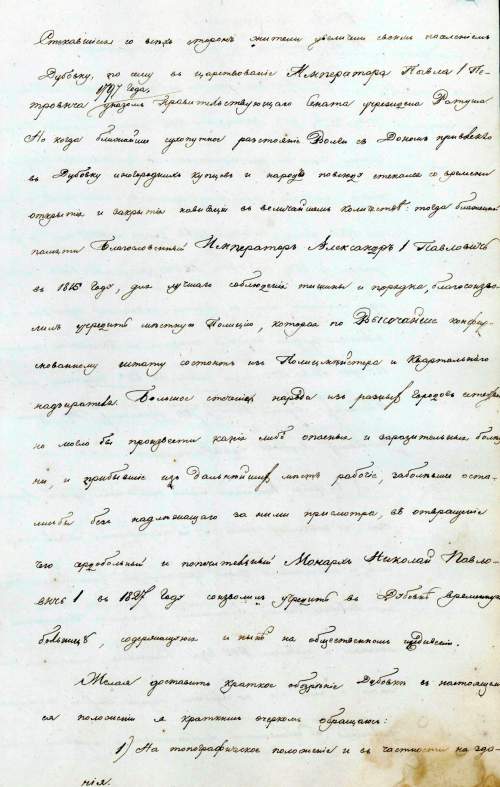 Стекавшіеся со всѣхъ сторонъ жители увеличили своимъ поселеніемъ
Дубовку, по чему въ царствованіе Императора Павла I Пе-
1797 года,
тровича указомъ Правительствующаго Сената учреждена Ратуша
Но когда ближайшее сухопутное разстояніе Волги съ Дономъ привлекло
въ Дубовку иногородныхъ купцевъ и народъ повсюду стекался со времени
открытія и закрытія навигаціи въ величайшемъ количествѣ: тогда блаженной
памяти Благословенный Императоръ Александръ I Павловичь
въ 1816 году, для лучшаго соблюденія тишины и порядка, благосоизво-
лилъ учредить мѣстную Полицію, которая по Высочайше конфир-
мованному штату состоитъ изъ Полицмейстера и Квартальнаго
надзирателя. Большое стеченіе народа изъ разныхъ городовъ естествен
но могло бы произвести какіе либо опасные и заразительные болѣз
ни, и прибывшіе изъ дальнѣйшихъ мѣстъ рабочіе, заболѣвши оста-
лись бы безъ надлежащаго за ними присмотра, въ отвращеніе
чего сердобольный и попечительный Монархъ Николай Павло-
вичь I въ 1827 году соизволилъ учредить въ Дубовкѣ временную
больницу, содержащуюся и нынѣ на общественномъ иждивеніи.
Желая доставить краткое обозрѣніе Дубовки въ настоящем
ея положеніи я краткимъ очеркомъ обращаюсь:
1) На топографическое положеніе и въ частности на зда-
нія.